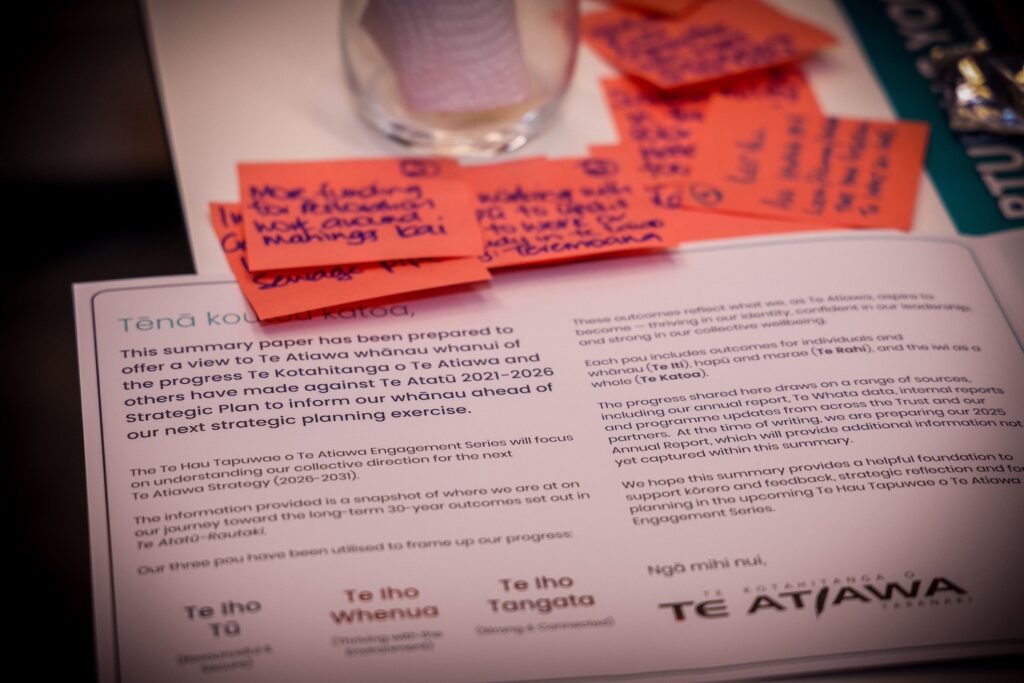 More funding
for restoration
work around
Mahinga kai
sewage pipe
working with
to uplift
to work
Toiemoana
Tēnā koutou katoa,
This summary paper has been prepared to
offer a view to Te Atiawa whānau whanui of
the progress Te Kotahitanga o Te Atiawa and
others have made against Te Atatū 2021-2026
Strategic Plan to inform our whānau ahead of
our next strategic planning exercise.
The Te Hau Tapuwae o Te Atiawa Engagement Series will focus
on understanding our collective direction for the next
Te Atiawa Strategy (2026-2031).
The information provided is a snapshot of where we are at on
our journey toward the long-term 30-year outcomes set out in
Te Atatū-Rautaki.
Our three pou have been utilised to frame up our progress:
Te Iho
Tū
(Resourceful &
Secure)
Te Iho
Whenua
(Thriving with the
Environment)
Te Iho
Tangata
(Strong & Connected)
These outcomes reflect what we, as Te Atiawa, aspire to
become – thriving in our identity, confident in our leadership,
and strong in our collective wellbeing.
Each pou includes outcomes for individuals and
whānau (Te Iti), hapū and marae (Te Rahi), and the iwi as a
whole (Te Katoa).
The progress shared here draws on a range of sources,
including our annual report, Te Whata data, internal reports
and programme updates from across the Trust and our
partners. At the time of writing, we are preparing our 2025
Annual Report, which will provide additional information not
yet captured within this summary.
We hope this summary provides a helpful foundation to
support kōrero and feedback, strategic reflection and for
planning in the upcoming Te Hau Tapuwae o Te Atiawa
Engagement Series.
Ngā mihi nui,
TE KOTAHITANGA O
TE ATIAWA
TARANAKI